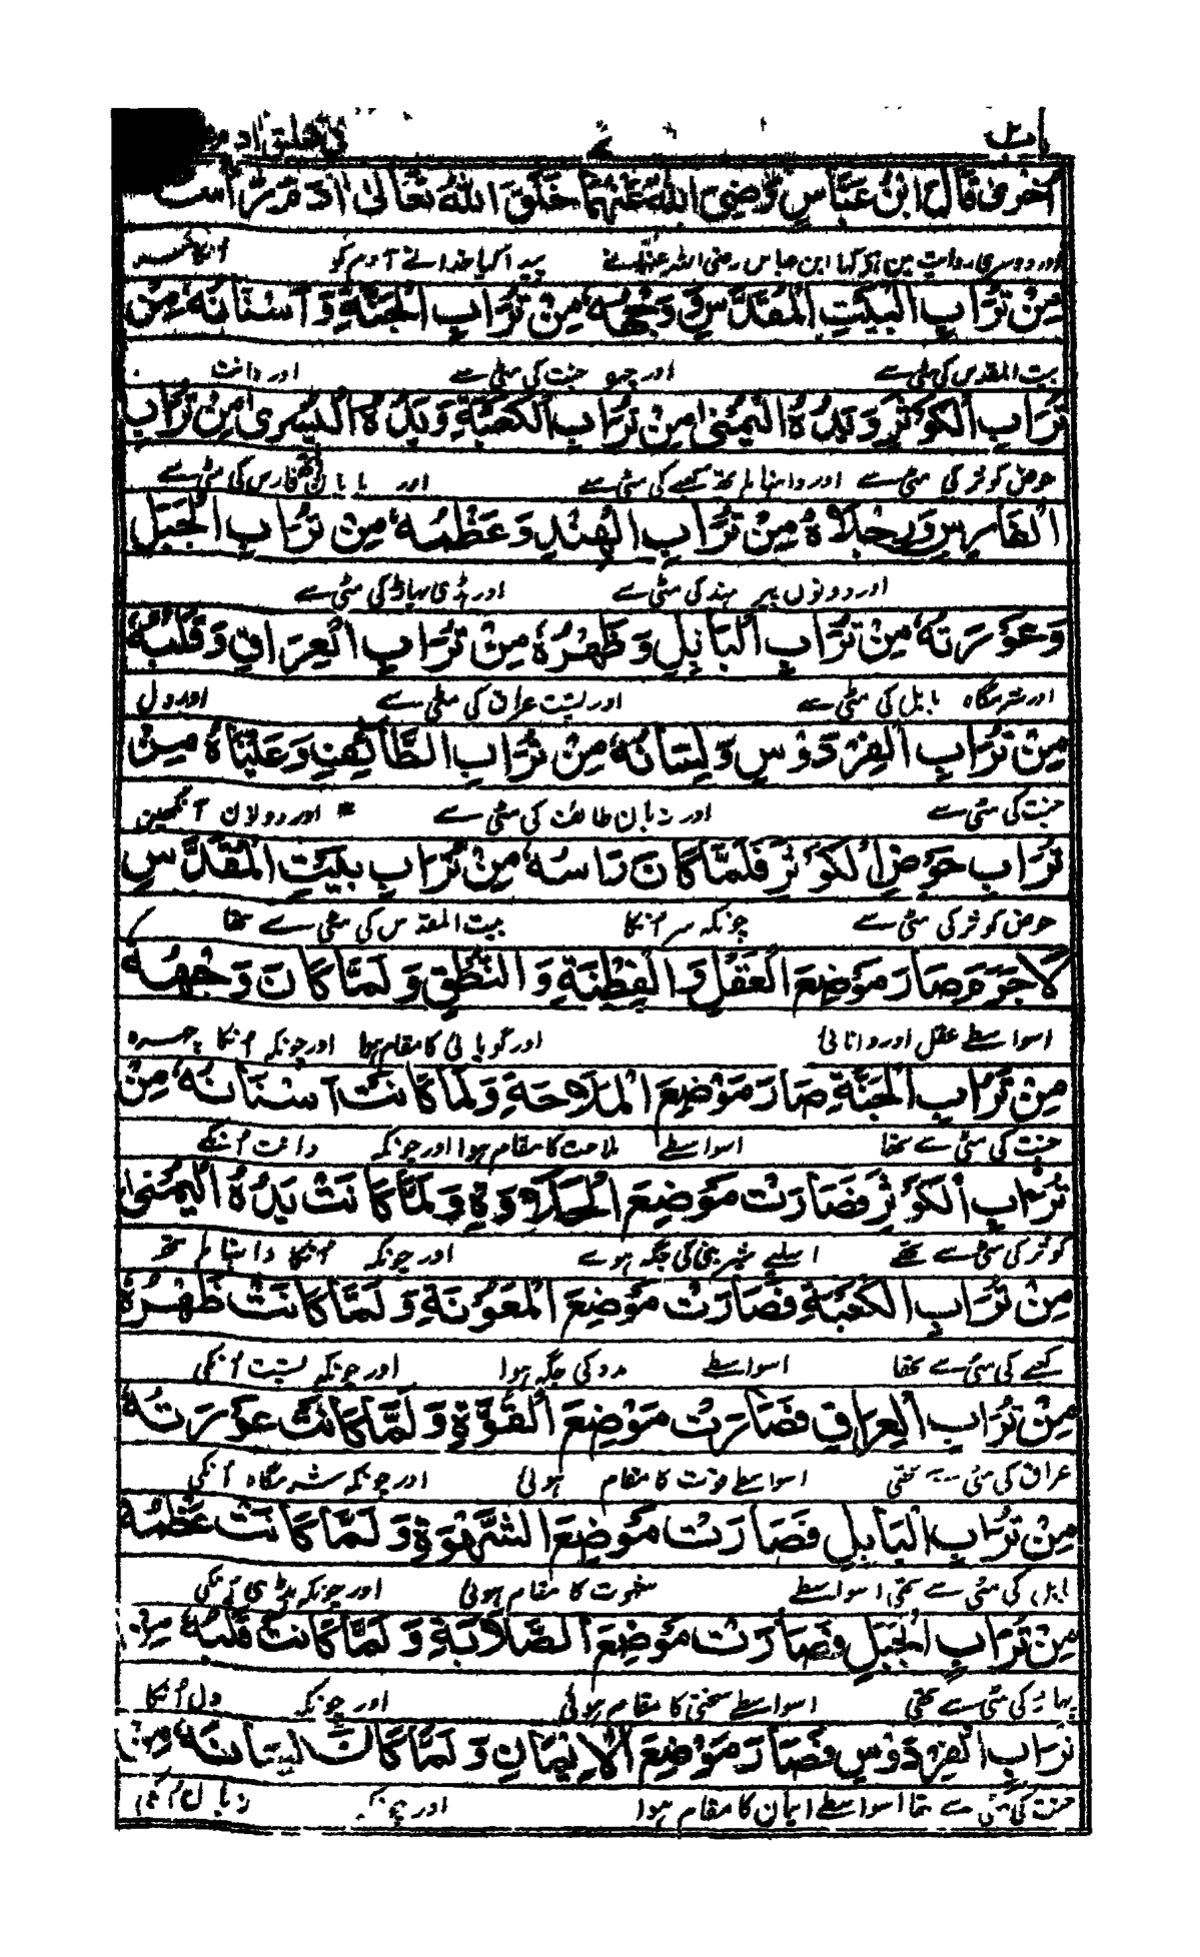 باب ۷ فی تخلیق ادم
اُخْرٰى قَالَ ابْنُ عَبَّاسٍ رَّضِیَ اللّٰهُ عَنْهُمَا خَلَقَ اللّٰهُ تَعَالٰى اٰدَمَ رَاْسَهٗ
اور دوسری روایت مین ہو کہا ابن عباس رضی اللہ عنہما نے پیدا کیا خدا نے آدم کو اُنکا سر
مِنْ تُرَابِ الْبَيْتِ الْمُقَدَّسِ وَ وَجْهُهٗ مِنْ تُرَابِ الْجَنَّةِ وَ اَسْنَانُهٗ مِنْ
بیت المقدس کی مٹی سے اور چہرہ جنت کی مٹی سے اور دانت
تُرَابِ الْكَوْثَرِ وَ يَدُهُ الْيُمْنٰى مِنْ تُرَابِ الْكَعْبَةِ وَ يَدُهُ الْيُسْرٰى مِنْ تُرَابِ
حوض کوثر کی مٹی سے اور داہنا ہاتھ کعبے کی مٹی سے اور بایاں ہاتھ فارس کی مٹی سے
الْفَارِسِ وَ رِجْلَاهُ مِنْ تُرَابِ الْهِنْدِ وَ عَظْمُهٗ مِنْ تُرَابِ الْجَبَلِ
اور دونوں پیر ہند کی مٹی سے اور ہڈی پہاڑ کی مٹی سے
وَ عَوْرَتُهٗ مِنْ تُرَابِ الْبَابِلِ وَ ظَهْرُهٗ مِنْ تُرَابِ الْعِرَاقِ وَ قَلْبُهٗ
اور شرمگاہ بابل کی مٹی سے اور پشت عراق کی مٹی سے اور دل
مِنْ تُرَابِ الْفِرْدَوْسِ وَ لِسَانُهٗ مِنْ تُرَابِ الطَّائِفِ وَ عَيْنَاهُ مِنْ
جنت کی مٹی سے اور زبان طائف کی مٹی سے * اور دونوں آنکھین
تُرَابِ حَوْضِ الْكَوْثَرِ فَلَمَّا كَانَ رَاْسُهٗ مِنْ تُرَابِ بَيْتِ الْمُقَدَّسِ
حوض کوثر کی مٹی سے چونکہ سر اُنکا بیت المقدس کی مٹی سے تھا
لَاجَرَمَ صَارَ مَوْضِعَ الْعَقْلِ وَ الْفِطْنَةِ وَ النُّطْقِ وَ لَمَّا كَانَ وَجْهُهٗ
اسواسطے عقل اور دانائی اور گویائی کا مقام ہوا اور چونکہ اُنکا چہرہ
مِنْ تُرَابِ الْجَنَّةِ صَارَ مَوْضِعَ الْمَلَاحَةِ وَ لَمَّا كَانَتْ اَسْنَانُهٗ مِنْ
جنت کی مٹی سے تھا اسواسطے ملاحت کا مقام ہوا اور چونکہ دانت اُنکے
تُرَابِ الْكَوْثَرِ فَصَارَتْ مَوْضِعَ الْحَلَاوَةِ وَ لَمَّا كَانَتْ يَدُهُ الْيُمْنٰى
کوثر کی مٹی سے تھے اسلیے شیرینی کی جگہ ہوے اور چونکہ اُنکا داہنا ہاتھ
مِنْ تُرَابِ الْكَعْبَةِ فَصَارَتْ مَوْضِعَ الْمَعُوْنَةِ وَ لَمَّا كَانَتْ ظَهْرُهٗ
کعبے کی مٹی سے تھا اسواسطے مدد کی جگہ ہوا اور چونکہ پشت اُنکی
مِنْ تُرَابِ الْعِرَاقِ فَصَارَتْ مَوْضِعَ الْقُوَّةِ وَ لَمَّا كَانَتْ عَوْرَتُهٗ
عراق کی مٹی سے تھی اسواسطے قوت کا مقام ہوئی اور چونکہ شرمگاہ اُنکی
مِنْ تُرَابِ الْبَابِلِ فَصَارَتْ مَوْضِعَ الشَّهْوَةِ وَ لَمَّا كَانَتْ عَظْمُهٗ
بابل کی مٹی سے تھی اسواسطے شہوت کا مقام ہوئی اور چونکہ ہڈی اُنکی
مِنْ تُرَابِ الْجَبَلِ فَصَارَتْ مَوْضِعَ الصَّلَابَةِ وَ لَمَّا كَانَتْ قَلْبُهٗ مِنْ
پہاڑ کی مٹی سے تھی اسواسطے سختی کا مقام ہوئی اور چونکہ دل اُنکا
تُرَابِ الْفِرْدَوْسِ فَصَارَ مَوْضِعَ الْاِيْمَانِ وَ لَمَّا كَانَ لِسَانُهٗ مِنْ
جنت کی مٹی سے تھا اسواسطے ایمان کا مقام ہوا اور چونکہ زبان اُنکی